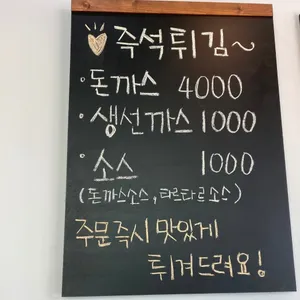 즉석튀김~
·돈까스 4000
·생선까스 1000
·소스 1000
(돈까스소스, 타르타르소스)
주문즉시 맛있게
튀겨드려요!